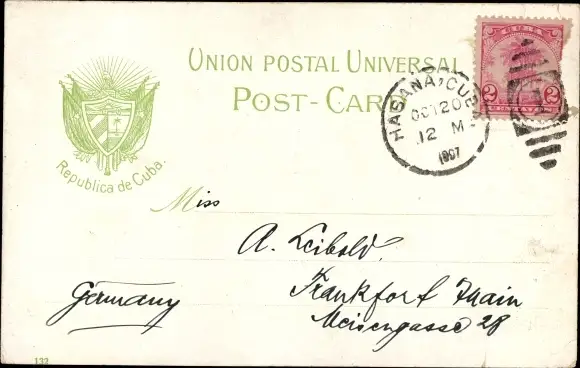 UNION POSTAL UNIVERSAL
POST-CARD
Republica de Cuba.
HABANA, CUBA
OCT 20
12 M
1907
CUBA
2 2
Miss
A. Leibold.
Germany
Frankfort Main
Meisengasse 28
132